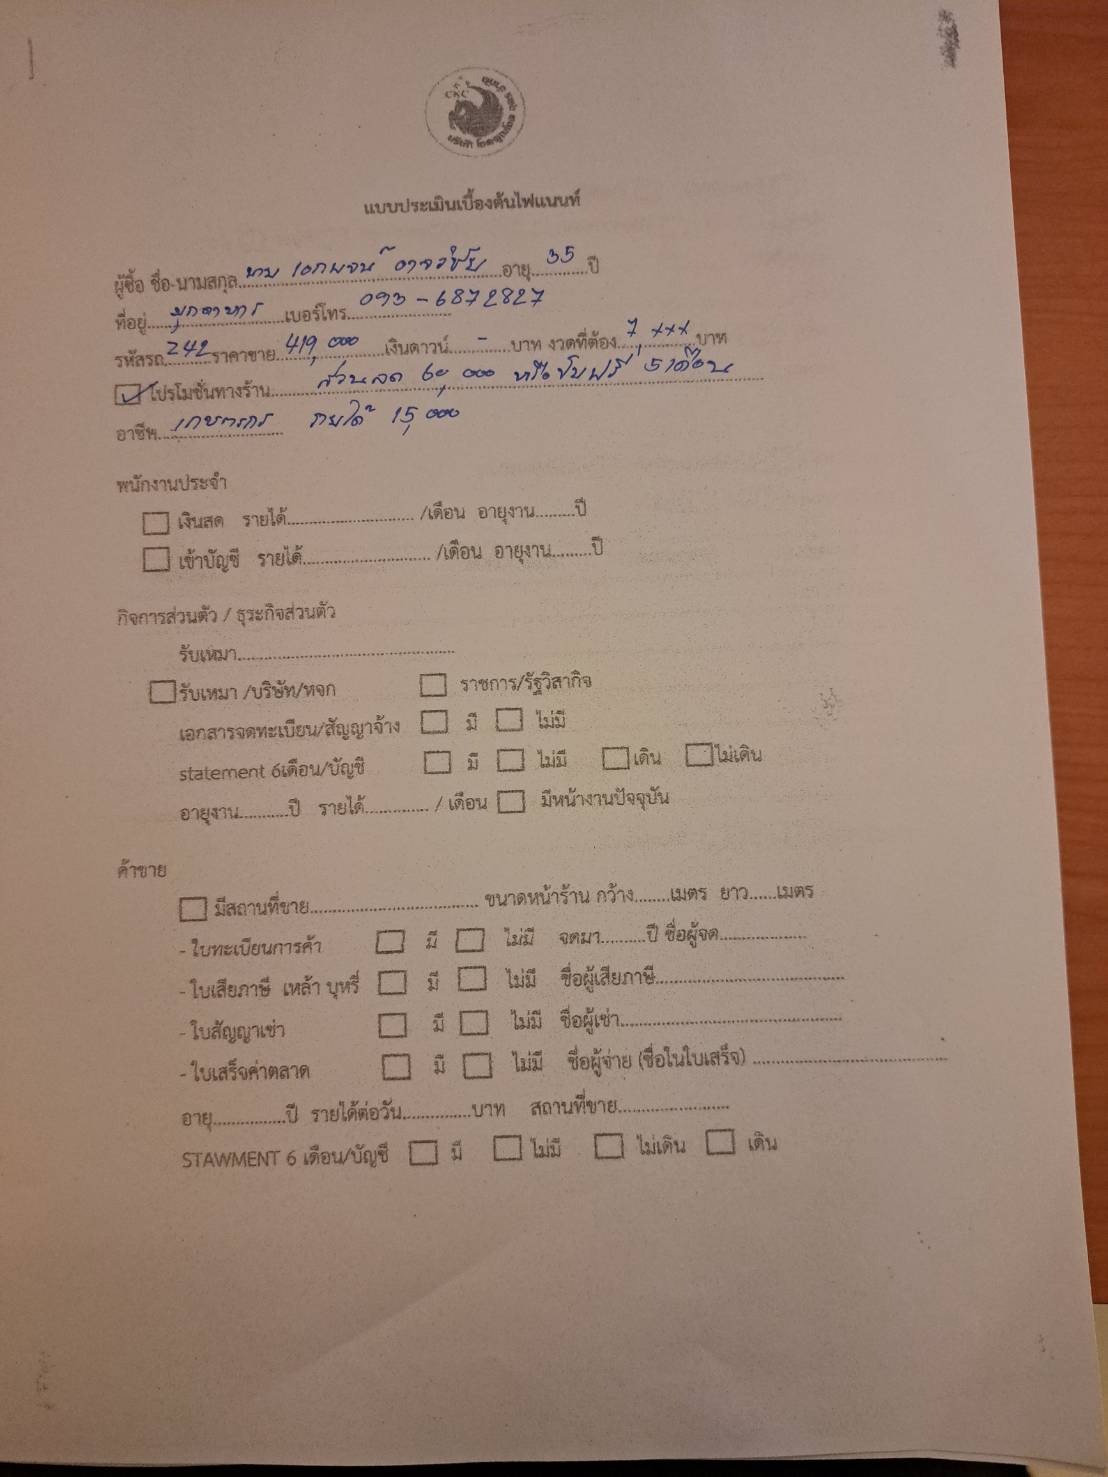 แบบประเมินเบื้องต้นไฟแนนท์
ผู้ซื้อ ชื่อ-นามสกุล นาย เอกพจน์ อาจวิชัย อายุ 35 ปี
ที่อยู่ มุกดาหาร เบอร์โทร 093-6872827
รหัสรถ 242 ราคาขาย 419,000 เงินดาวน์ - บาท งวดที่ต้อง 7,xxx บาท
โปรโมชั่นทางร้าน ส่วนลด 60,000 หรือขับฟรี 5 เดือน
อาชีพ เกษตรกร รายได้ 15,000
พนักงานประจำ
เงินสด รายได้ /เดือน อายุงาน ปี
เข้าบัญชี รายได้ /เดือน อายุงาน ปี
กิจการส่วนตัว / ธุระกิจส่วนตัว
รับเหมา
รับเหมา /บริษัท/หจก ราชการ/รัฐวิสากิจ
เอกสารจดทะเบียน/สัญญาจ้าง มี ไม่มี
statement 6เดือน/บัญชี มี ไม่มี เดิน ไม่เดิน
อายุงาน ปี รายได้ / เดือน มีหน้างานปัจจุบัน
ค้าขาย
มีสถานที่ขาย ขนาดหน้าร้าน กว้าง เมตร ยาว เมตร
- ใบทะเบียนการค้า มี ไม่มี จดมา ปี ชื่อผู้จด
- ใบเสียภาษี เหล้า บุหรี่ มี ไม่มี ชื่อผู้เสียภาษี
- ใบสัญญาเช่า มี ไม่มี ชื่อผู้เช่า
- ใบเสร็จค่าตลาด มี ไม่มี ชื่อผู้จ่าย (ชื่อในใบเสร็จ)
อายุ ปี รายได้ต่อวัน บาท สถานที่ขาย
STAWMENT 6 เดือน/บัญชี มี ไม่มี ไม่เดิน เดิน